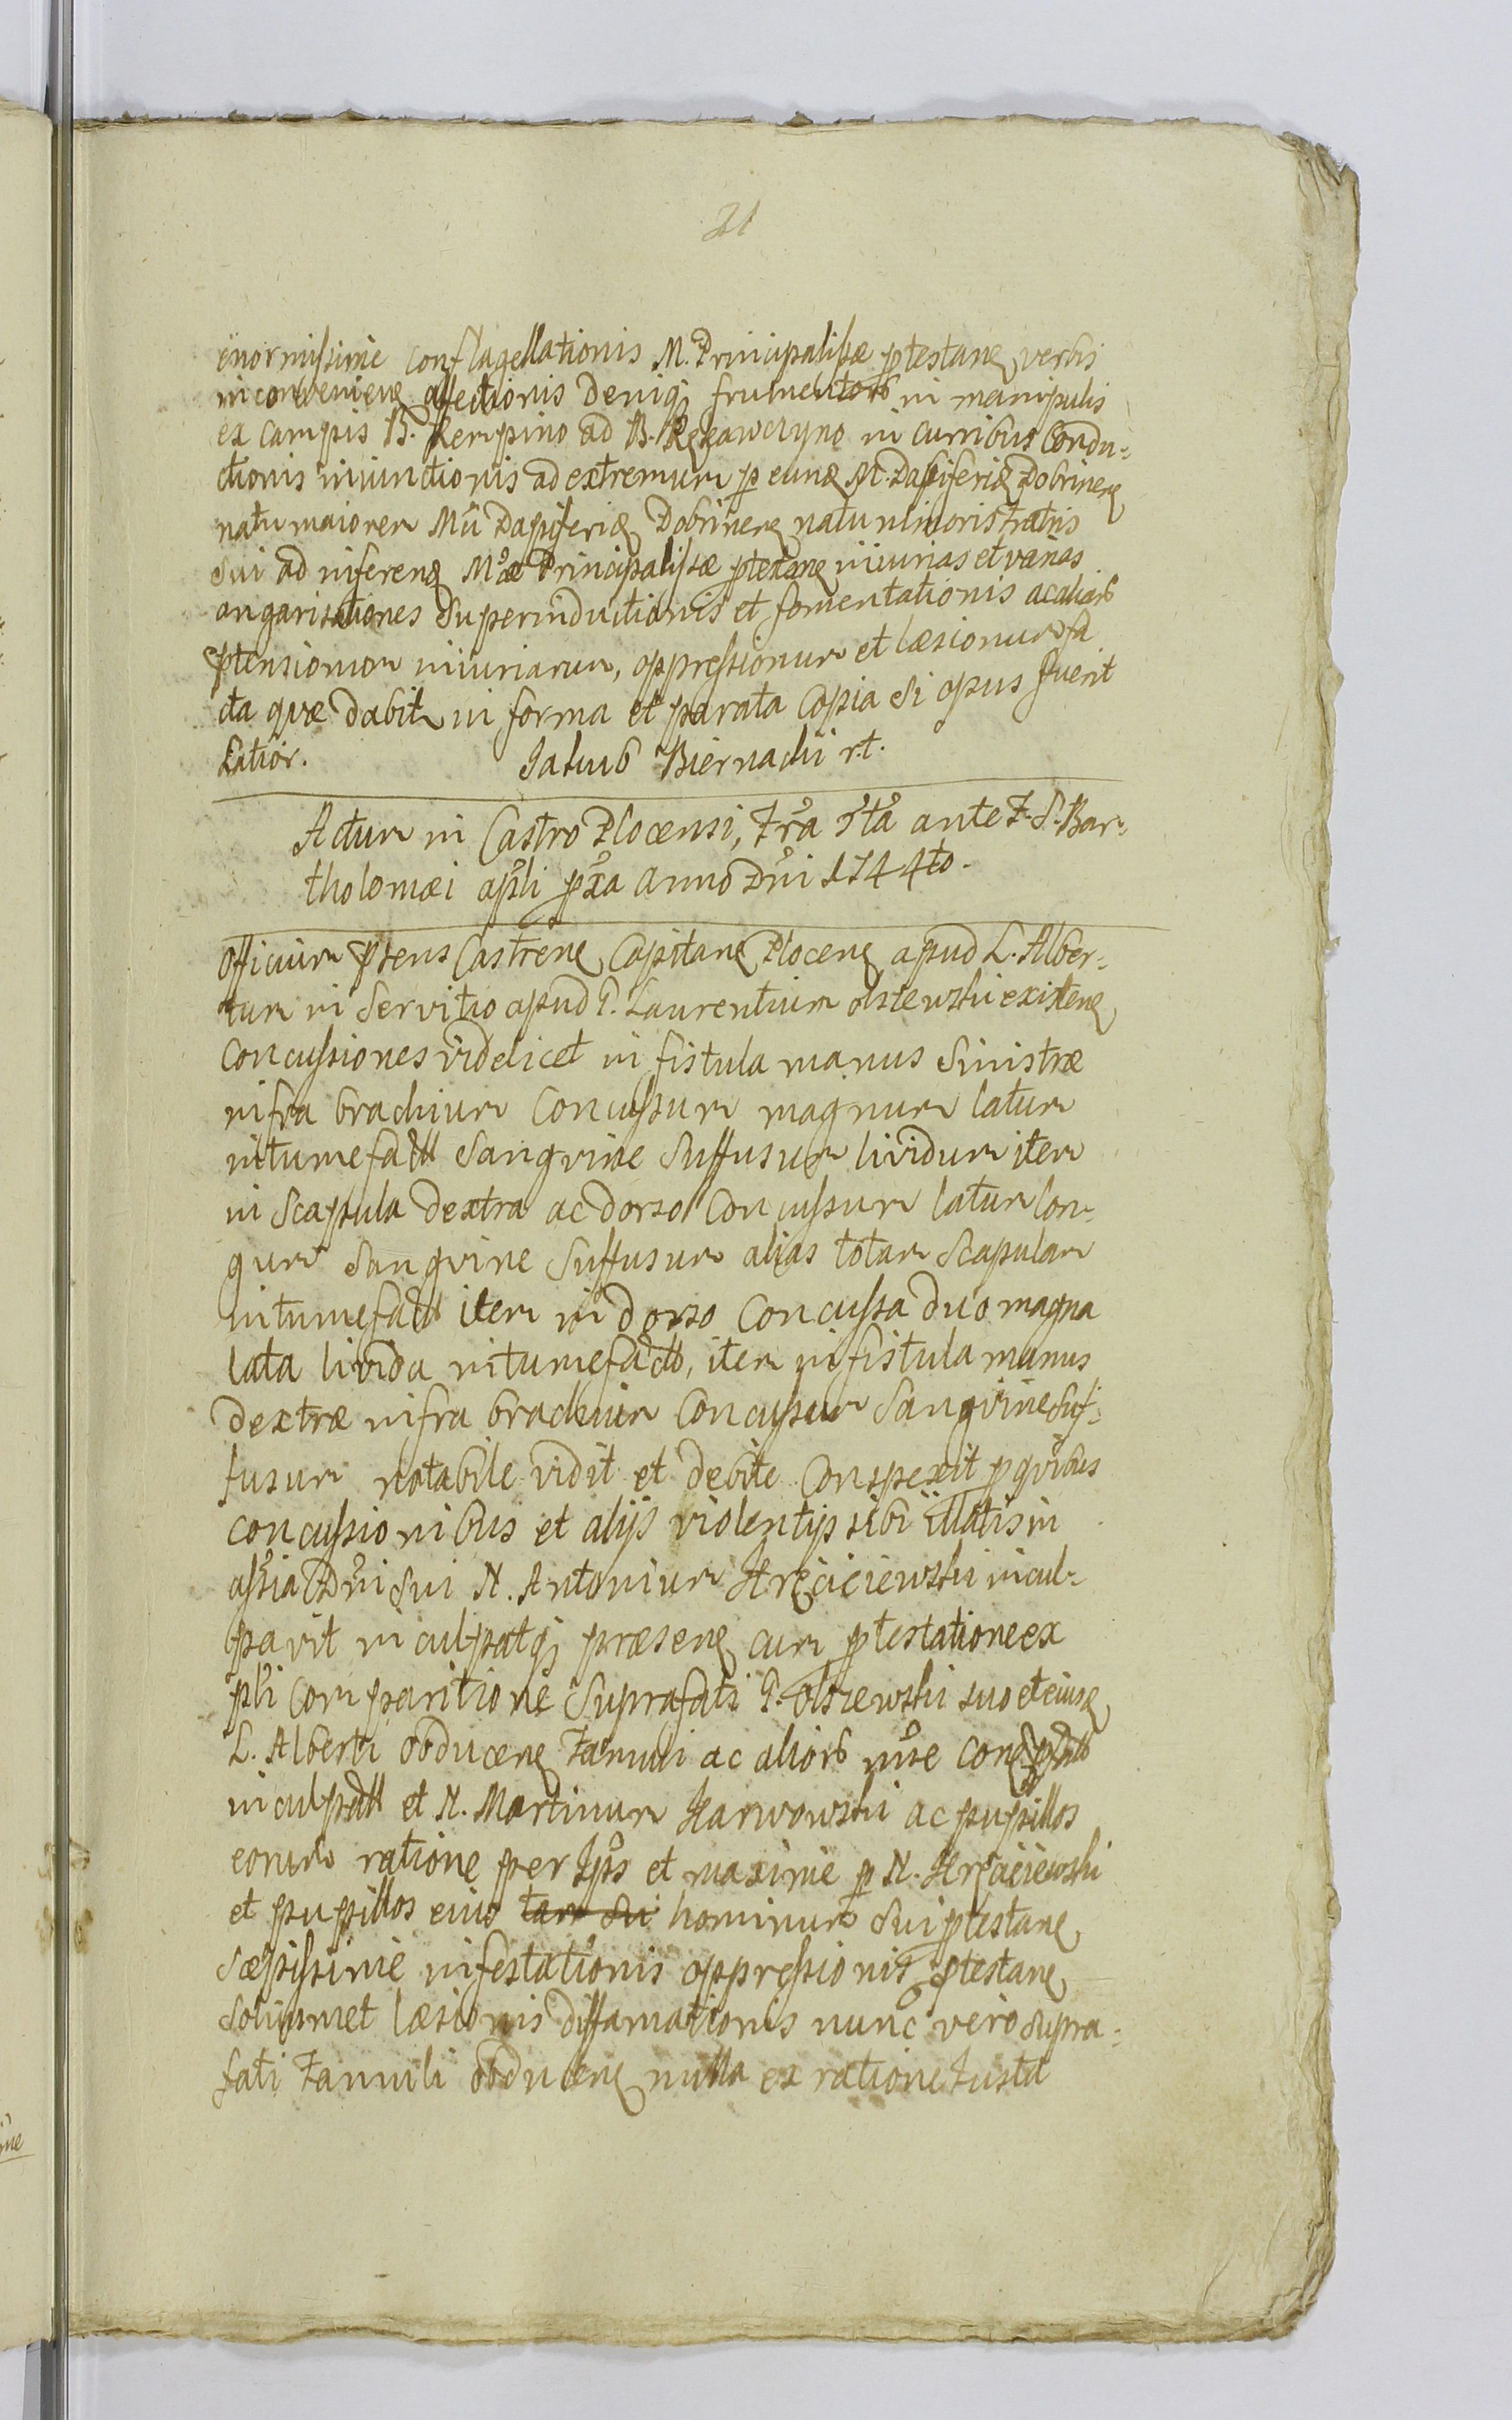 21
enormissime conflagellationis M. Principalissæ ptestanę verbis
inconvenienę affectionis deniqꝫ frumentorꝫ in manipulis
ex campis B. Kempino ad B. in curribus Condu-
ctionis iniunctionis ad extremum p eunđ M. Dapiferię Dobrinenę
natu maiorem Mci Dapiferię Dobrinenę natu minoris Fratris
sui ad inferenđ Mcæ Principalissæ ptestanę iniurias et varias
angarisationes superinductionis et fomentationis ac aliarꝫ
ptensionum iniuriarum, oppressionum et læsionum fa
cta quæ dabitur in forma et parata Copia si opus fuerit
Latior. Jakub Biernacki r.t.
Actum in Castro Plocensi, Fra 5ta ante F. S. Bar-
tholomæi apli pxa Anno Dni 1744to.
Officium ptens Castrenę Capitanę Plocenę apud L. Alber-
tum in servitio apud G. Laurentium olszewski existenę
Concussiones videlicet in fistula manus Sinistræ
infra brachium Concussum magnum latum
intumefactt Sangvine Suffusum lividum item
in Scapula dextra ac dorso Concussum latum lon-
gum Sangvine Suffusum alias totam Scapulam
intumefactt item in dorso Concussa duo magna
lata livida intumefactt, item in fistula manus
dextræ infra brachium Concussum Sangvine Suf-
fusum notabile vidit et debite Conspexit p qvibus
concussionibus et alijs violentijs sibi illatis in
assia Dni sui N. Antonium incul-
pavit inculpatqꝫ præsenę cum ptestatione ex
pli comparitione Suprafati G. Olszewski suo et eiusđ
L. Alberti obducenę Famuli ac aliorꝫ noie
inculpatt et N. Martinum Karwowski ac pupillos
eorum ratione per Ipos et maxime p N.
et pupillos eius tam sui hominum sui ptestanę
sæpissime infestationis oppressionis ptestanę
solummet læsionis diffamationis nunc vero supra-
fati Famuli obducenę nulla ex ratione Justa